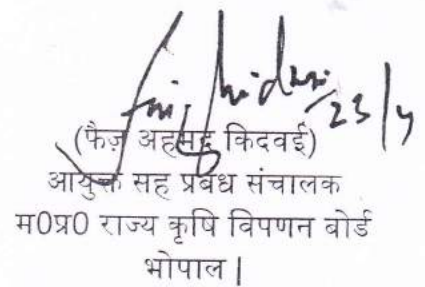 23/4
(फैज़ अहमद किदवई)
आयुक्त सह प्रबंध संचालक
म0प्र0 राज्य कृषि विपणन बोर्ड
भोपाल |